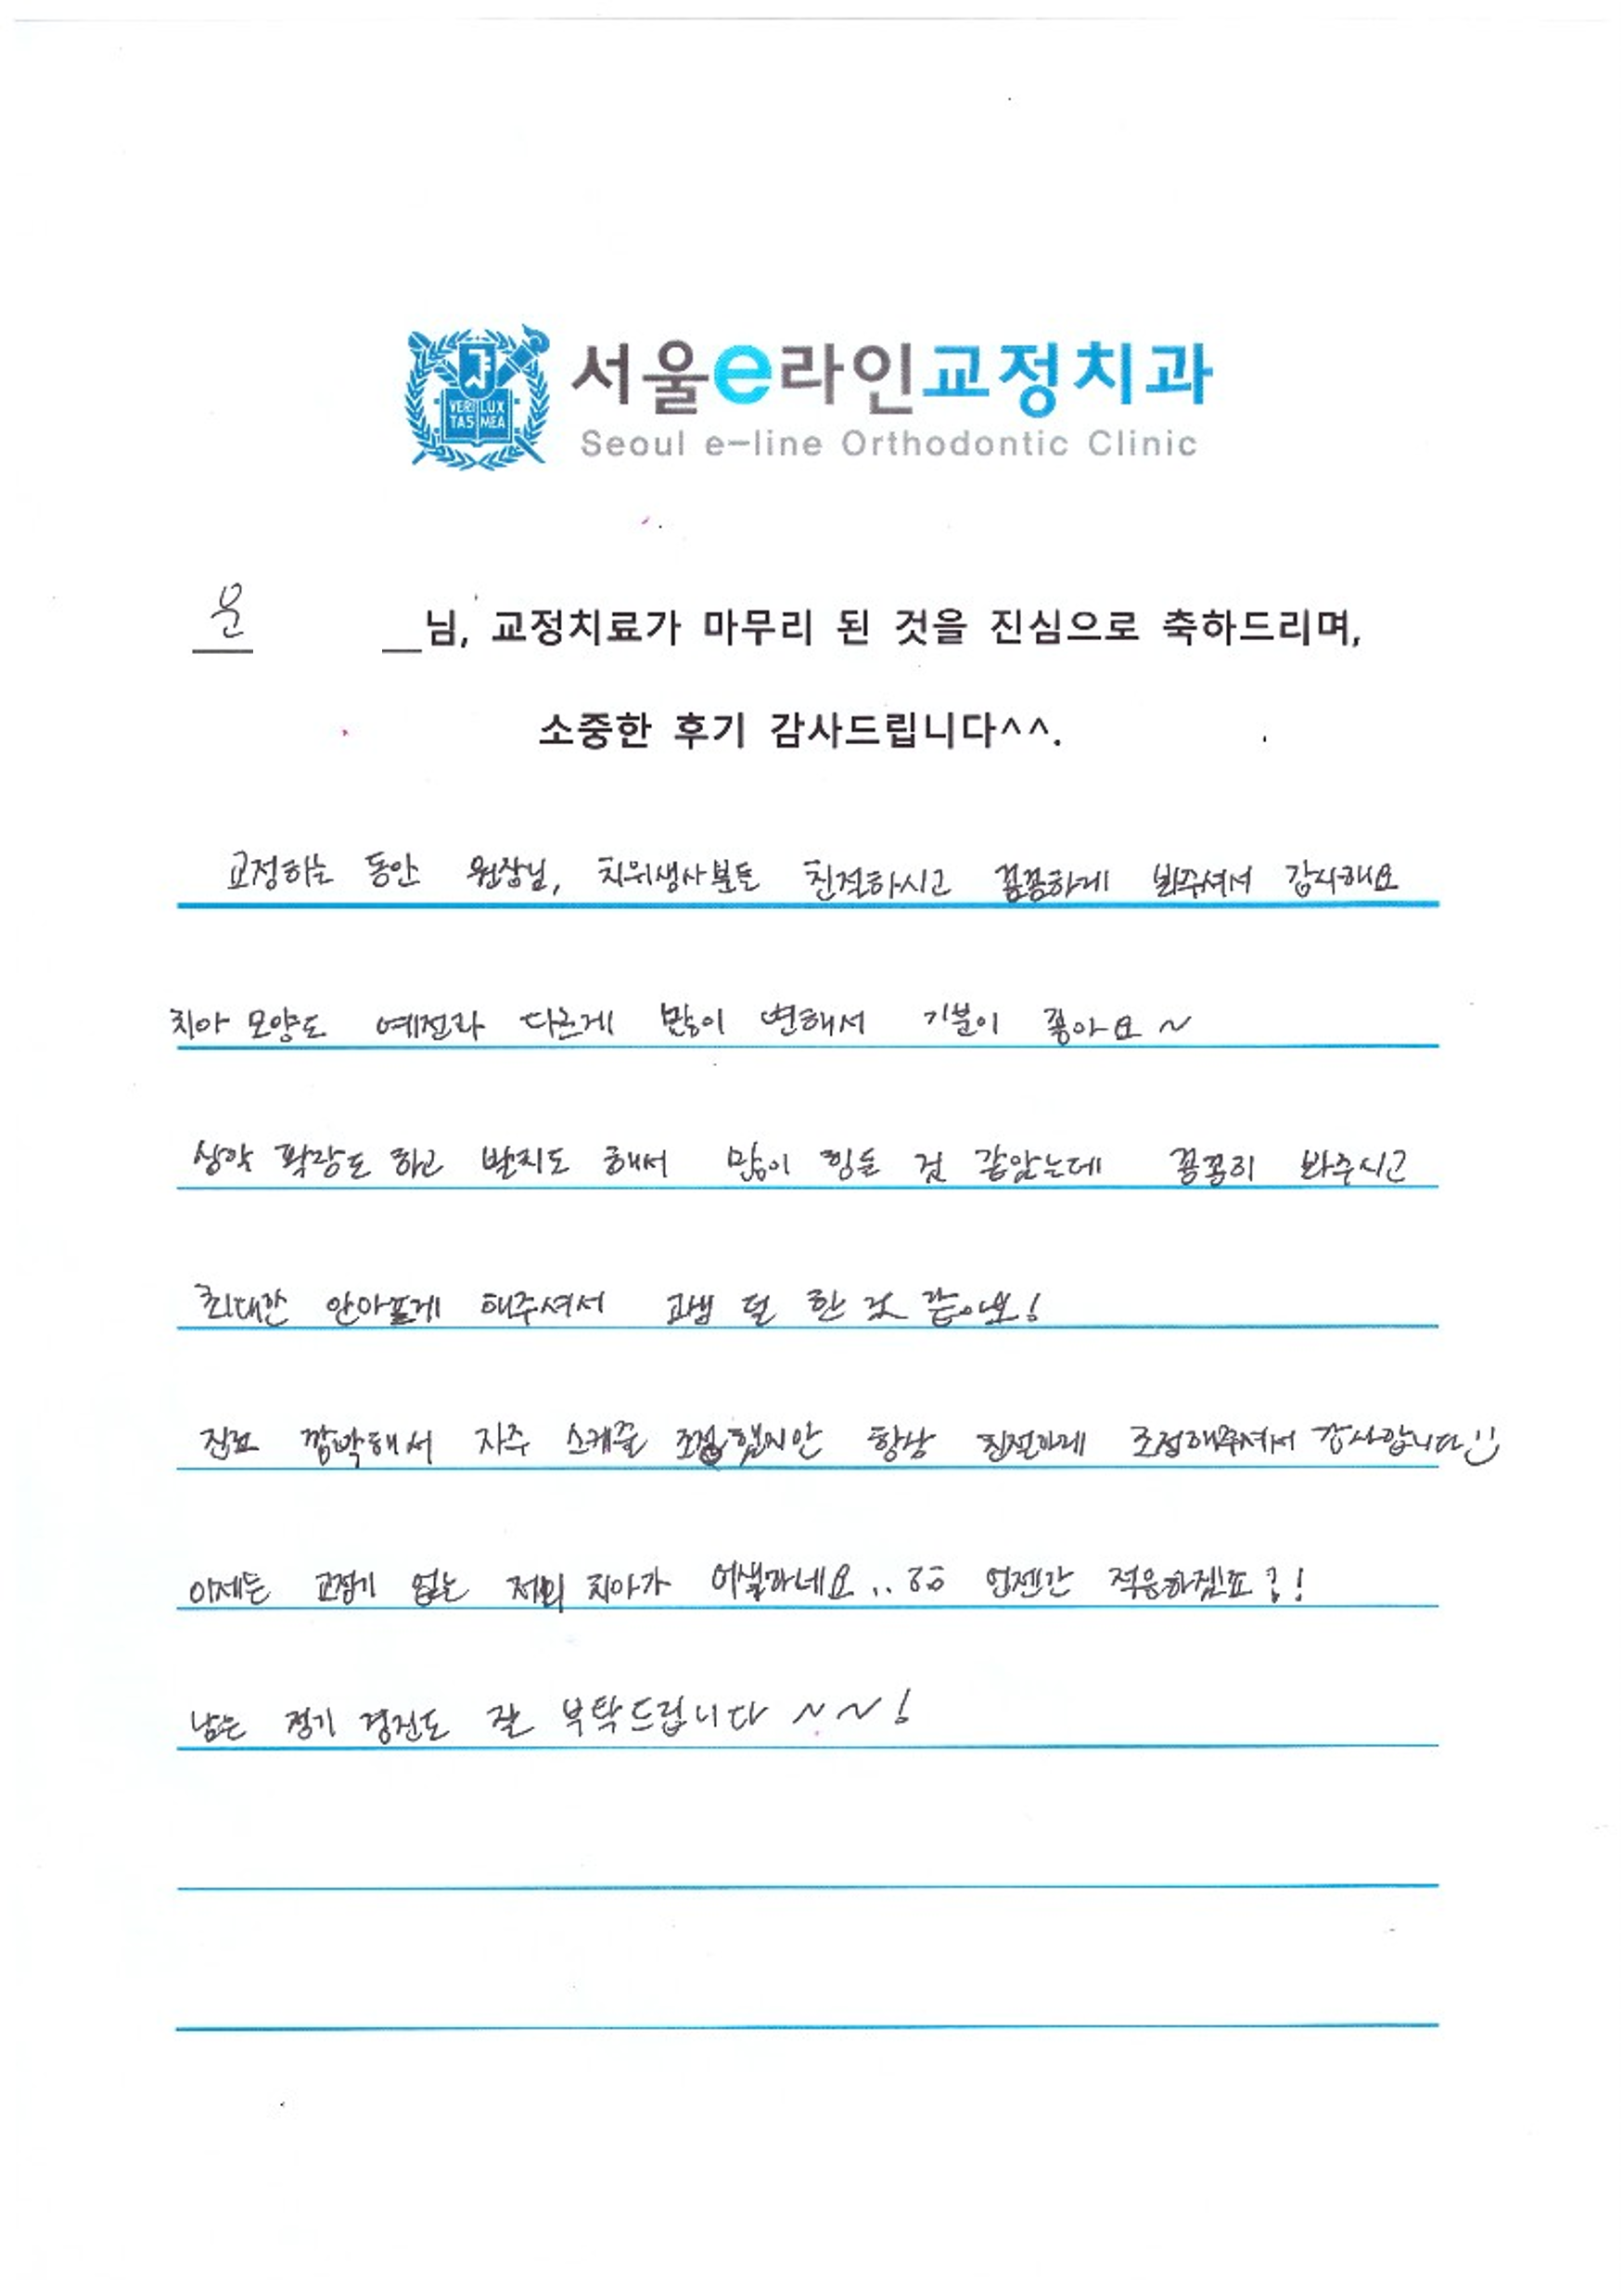 VERI LUX
TAS MEA
서울e라인교정치과
Seoul e-line Orthodontic Clinic
윤 님, 교정치료가 마무리 된 것을 진심으로 축하드리며,
소중한 후기 감사드립니다^^.
교정하는 동안 원장님, 치위생사분들 친절하시고 꼼꼼하게 봐주셔서 감사해요
치아 모양도 예전과 다르게 많이 변해서 기분이 좋아요~
상악 확장도 하고 발치도 해서 많이 힘들 것 같았는데 꼼꼼히 봐주시고
최대한 안아프게 해주셔서 고생 덜 한 것 같아요!
진료 깜박해서 자주 스케줄 조정했지만 항상 친절하게 조정해주셔서 감사합니다
이제는 교정기 없는 저의 치아가 어색하네요.. 언젠간 적응하겠죠?!
남은 정기 검진도 잘 부탁드립니다 ~~!